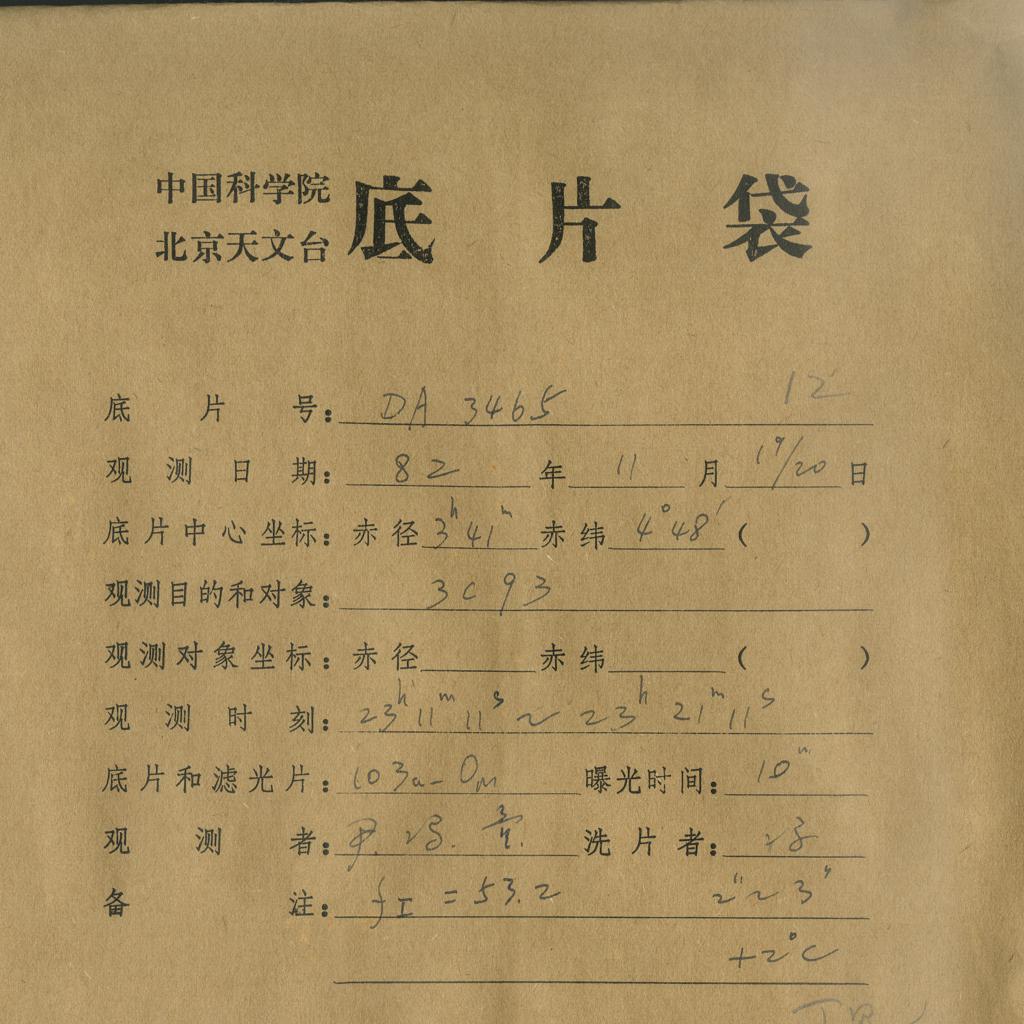 中国科学院
北京天文台
底片袋
底片号: DA 3465 12
观测日期: 82 年 11 月 19/20 日
底片中心坐标: 赤径 3ʰ 41ᵐ 赤纬 4°48′ ( )
观测目的和对象: 3C93
观测对象坐标: 赤径 赤纬 ( )
观测时刻: 23ʰ 11ᵐ 11ˢ ~ 23ʰ 21ᵐ 11ˢ
底片和滤光片: 103a-O 曝光时间: 10ᵐ
观测者: 尹. 冯. 洗片者: 冯
备注: fI = 53.2 2″~3″
+2°C